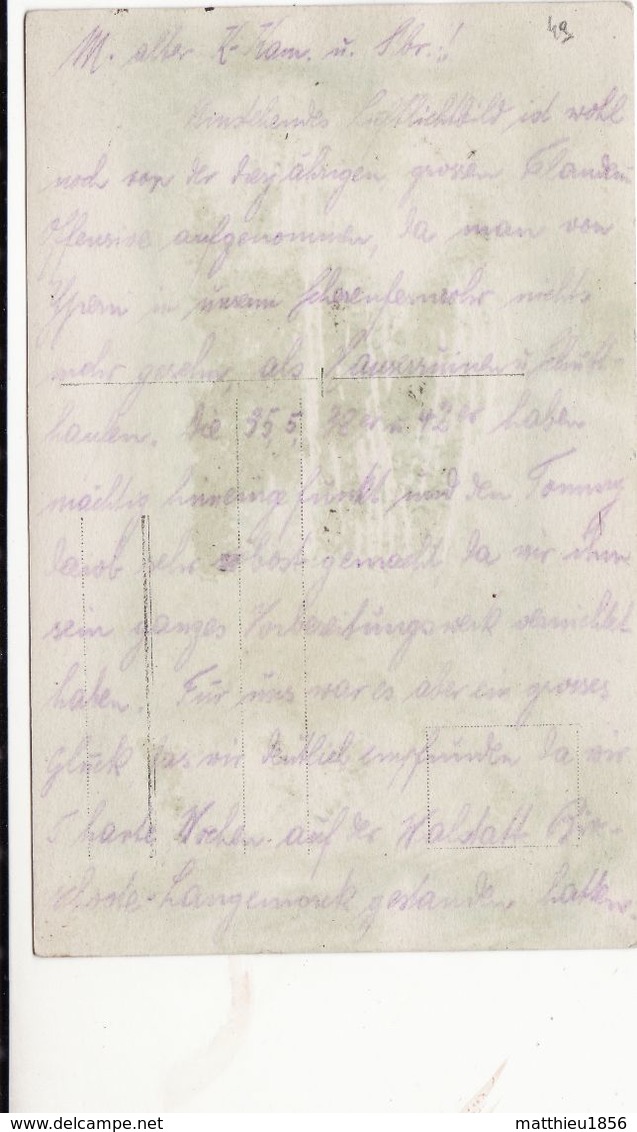 49
M. alter K-Kam. u. Sbr.!!
Lichtbild ist wohl
noch von der diesjährigen grossen Flandern
Offensive aufgenommen, da man von
Ypern in unserm Scherenfernrohr nichts
mehr gesehen, als Häuserruinen u. Schutt-
haufen. Die 35,5, 38er u. 42er haben
mächtig hineingefunkt und den Tommy
darob sehr erbost gemacht, da wir ihm
sein ganzes Vorbereitungswerk vernichtet
haben. Für uns war es aber ein grosses
Glück das wir deutlich empfunden da wir
5 harte Wochen auf der Walstatt Bix-
schoote-Langemarck gestanden hatten
matthieu1856